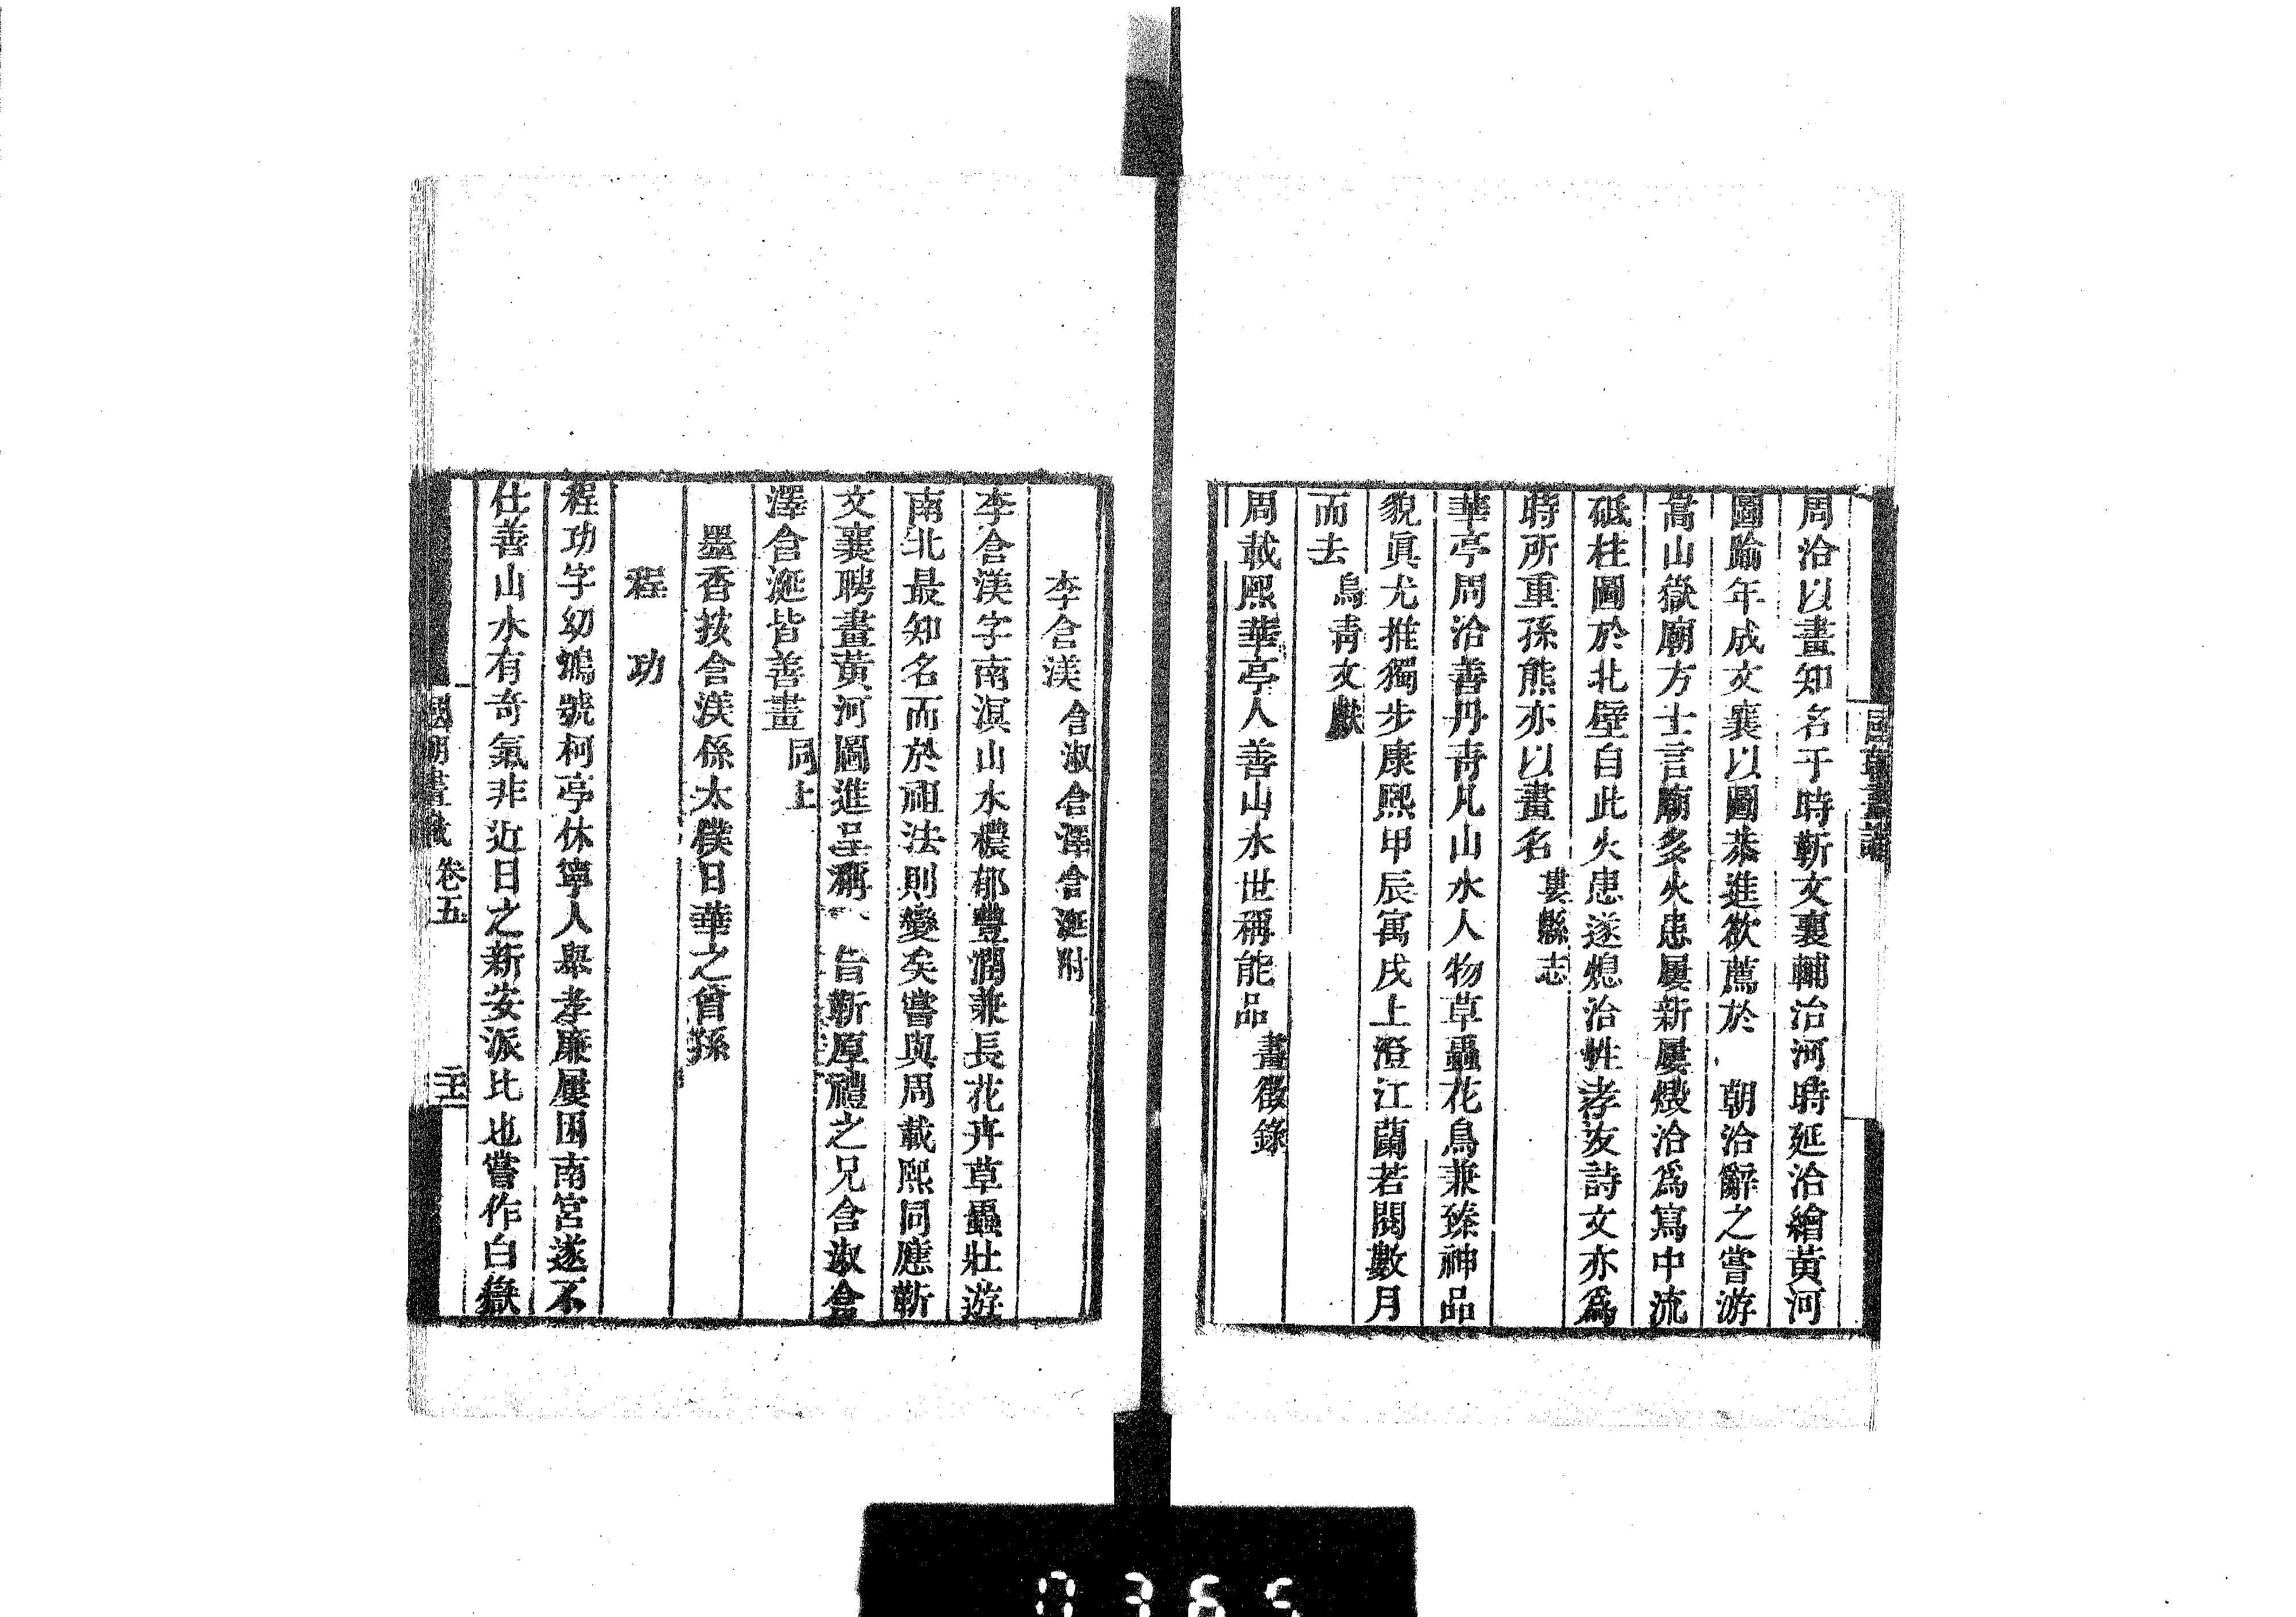 周洽以畫知名于時靳文襄輔治河時延洽繪黃河
圖踰年成文襄以圖恭進欲薦於　朝洽辭之嘗游
嵩山嶽廟方士言廟多火患屢新屢燬洽爲寫中流
砥柱圖於北壁自此火患遂熄洽性孝友詩文亦爲
時所重孫熊亦以畫名婁縣志
華亭周洽善丹靑凡山水人物草蟲花鳥兼臻神品
貌眞尤推獨步康熙甲辰寓戌上澄江蘭若閱數月
而去烏靑文獻
周載熙華亭人善山水世稱能品畫徵錄
李含渼含淑含澤含涎附
李含渼字南溟山水穠郁豐潤兼長花卉草蟲壯遊
南北最知名而於祖法則變矣嘗與周載熙同應靳
文襄聘畫黃河圖進呈稱　旨靳厚禮之兄含淑含
澤含涎皆善畫同上
墨香按含渼係太僕日華之曾孫
程功
程功字幼鴻號柯亭休寧人舉孝廉屢困南宮遂不
仕善山水有奇氣非近日之新安派比也嘗作白嶽
國朝畫識 卷五